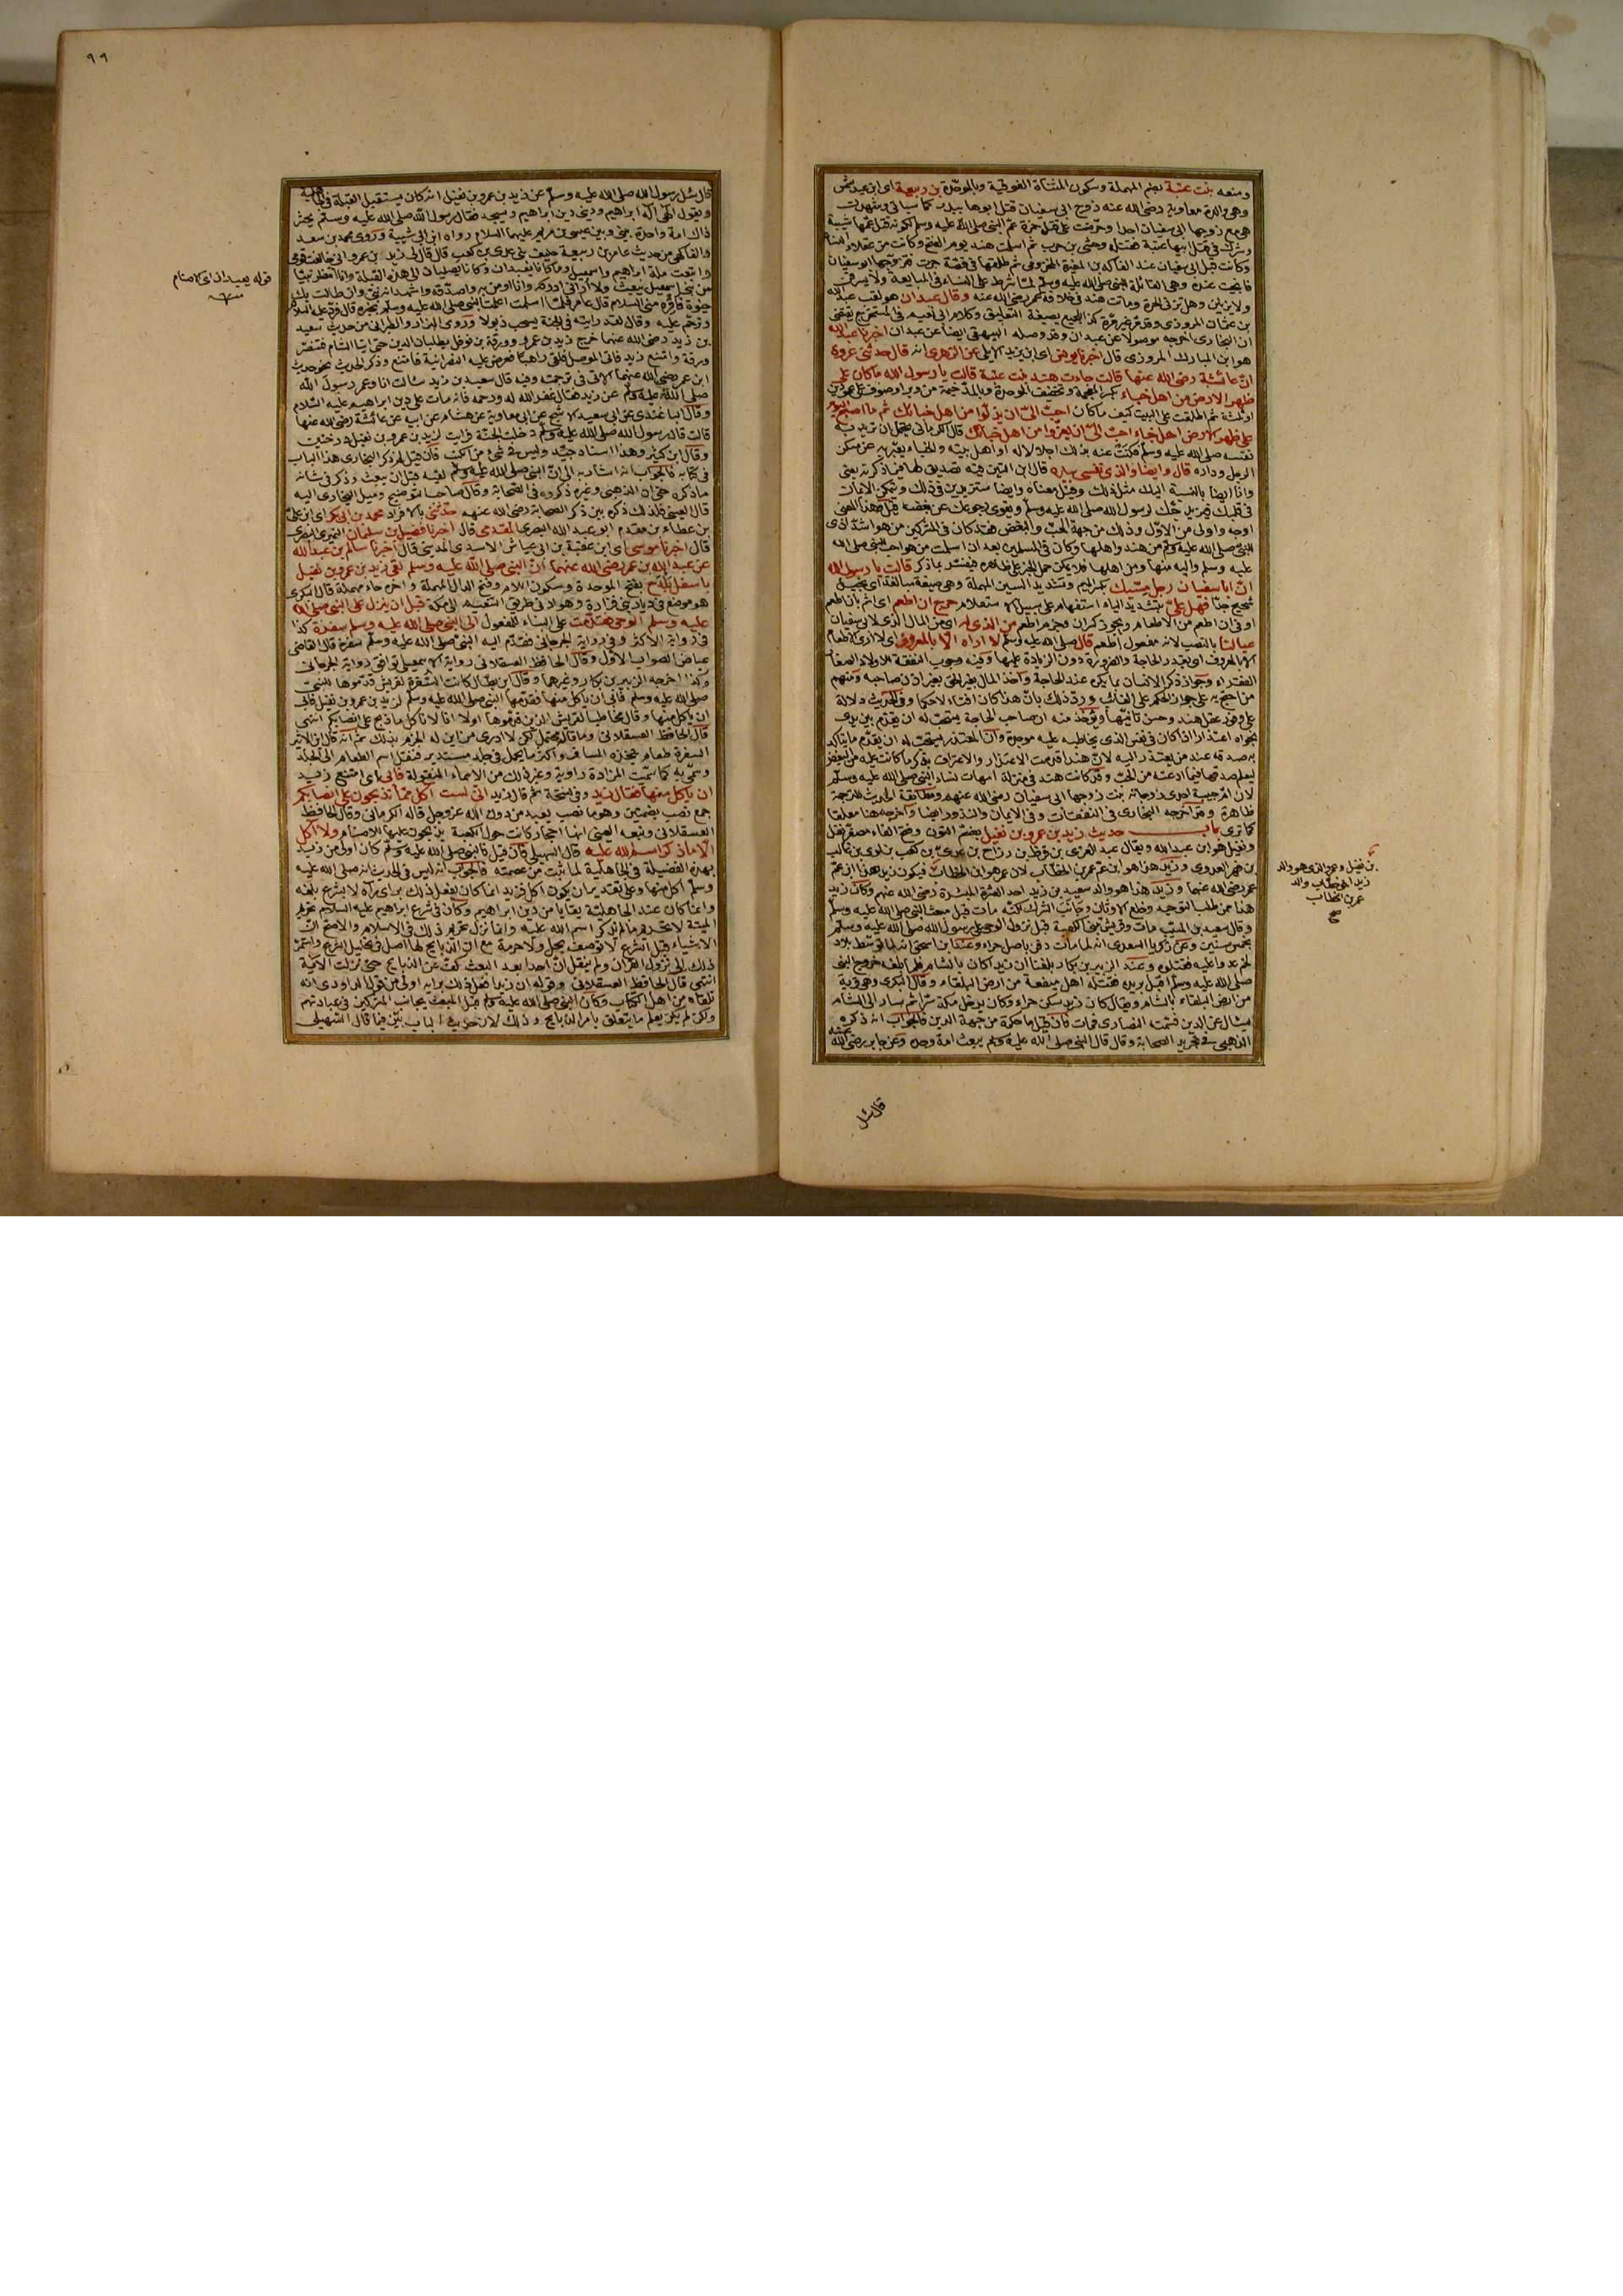 ومنعه بنت عتبة بضم المهملة وسكون المثناة الفوقية وبالموحدة بن ربيعة اى ابن عبد شمس
وهى والدة معاوية رضى الله عنه زوج ابى سفيان قتل ابوها ببدر كما سياتى وشهدت
هى مع زوجها ابى سفيان احدا وحرضت على قتل حمزة عم النبى صلى الله عليه وسلم لكونه قتل عمها شيبة
وشرك فى قتل ابيها عتبة فقتله وحشى بن حرب ثم اسلمت هند يوم الفتح وكانت من عقلاء النساء
وكانت قبل ابى سفيان عند الفاكه بن المغيرة المخزومى ثم طلقها فى قصة جرت فتزوجها ابو سفيان
فانجبت عنده وهى القائلة للنبى صلى الله عليه وسلم لما شرط على النساء فى المبايعة ولا يسرقن
ولا يزنين وهل تزنى الحرة وماتت هند فى خلافة عمر رضى الله عنه وقال عبدان هو لقب عبد الله
بن عثمان المروزى وقد مر غير مرة كذا للجميع بصيغة التعليق وكلام ابى نعيم فى المستخرج يقتضى
ان البخارى اخرجه موصولا عن عبدان وقد وصله البيهقى ايضا عن عبدان اخبرنا عبد الله
هو ابن المبارك المروزى قال اخبرنا يونس اى ابن يزيد الايلى عن الزهرى انه قال حدثنى عروة
ان عائشة رضى الله عنها قالت جاءت هند بنت عتبة قالت يا رسول الله ما كان على
ظهر الارض من اهل خباء بكسر المعجمة وتخفيف الموحدة وبالمد خيمة من وبر او صوف على عمودين
او ثلثة ثم اطلقت على البيت كيف ما كان احب الى ان يذلوا من اهل خبائك ثم ما اصبح اليوم
على ظهر الارض اهل خباء احب الى ان يعزوا من اهل خبائك قال الكرمانى يحتمل ان تريد به
نفسه صلى الله عليه وسلم فكنت عنه بذلك اجلالا له او اهل بيته والخباء يعبر به عن مسكن
الرجل وداره قال وايضا والذى نفسى بيده قال ابن التين فيه تصديق لها فيما ذكرته يعنى
وانا ايضا بالنسبة اليك مثل ذلك وقيل معناه وايضا ستزيدين فى ذلك وتمكن الايمان
فى قلبك فيزيد حبك لرسول الله صلى الله عليه وسلم ويقوى رجوعك عن بغضه قيل هذا المعنى
اوجه واولى من الاول وذلك من جهة الحب والبغض فقد كان فى المشركين من هو اشد اذى
للنبى صلى الله عليه وسلم من هند واهلها وكان فى المسلمين بعد ان اسلمت من هو احب للنبى صلى الله
عليه وسلم واليه منها ومن اهلها فلا يمكن حمل الخبر على ظاهره فيفسر بما ذكر قالت يا رسول الله
ان ابا سفيان رجل مسيك بكسر الميم وتشديد السين المهملة وهى صيغة مبالغة اى بخيل
شحيح جدا فهل على بتشديد الياء استفهام على سبيل الاستعلام حرج ان اطعم اى اثم بان اطعم
او فى ان اطعم من الاطعام ويجوز كسر ان وجزم اطعم من الذى له اى من المال الذى لابى سفيان
عيالنا بالنصب لانه مفعول اطعم قال صلى الله عليه وسلم لا اراه الا بالمعروف اى لا ارى الاطعام
الا بالمعروف اى بقدر الحاجة والضرورة دون الزيادة عليها وفيه وجوب النفقة للاولاد الصغار
الفقراء وجواز ذكر الانسان بما يكره عند الحاجة واخذ المال بغير اذن صاحبه ومنهم
من احتج به على جواز الحكم على الغائب ورد ذلك بان هذا كان افتاء لا حكما وفى الحديث دلالة
على وفور عقل هند وحسن تانيها ويؤخذ منه ان صاحب الحاجة يستحب له ان يقدم بين يدى
نجواه اعتذارا اذا كان فى نفس الذى يخاطبه عليه موجدة وان المعتذر يستحب له ان يقدم ما يتاكد
به صدقه عند من يعتذر اليه لان هندا قدمت الاعتذار والاعتراف بذكر ما كانت عليه من البغض
ليعلم صدقها فيما ادعته من الحب وقد كانت هند فى منزلة امهات نساء النبى صلى الله عليه وسلم
لان ام حبيبة احدى زوجاته بنت زوجها ابى سفيان رضى الله عنهم ومطابقة الحديث للترجمة
ظاهرة وقد اخرجه البخارى فى النفقات وفى الايمان والنذور ايضا واخرجه هنا معلقا
كما ترى باب حديث زيد بن عمرو بن نفيل بضم النون وفتح الفاء مصغر نفل
ونفيل هو ابن عبد الله ويقال عبد العزى بن قرط بن رزاح بن عدى بن كعب بن لوى بن غالب
بن فهر العدوى وزيد هذا هو ابن عم عمر بن الخطاب لان عمر هو ابن الخطاب فيكون زيد هذا ابن عم
عمر رضى الله عنهما وزيد هذا هو والد سعيد بن زيد احد العشرة المبشرة رضى الله عنهم وكان زيد
هذا ممن طلب التوحيد وخلع الاوثان وجانب الشرك لكنه مات قبل مبعث النبى صلى الله عليه وسلم
وقال سعيد بن المسيب مات وقريش تبنى الكعبة قبل نزول الوحى على رسول الله صلى الله عليه وسلم
بخمس سنين وعن زكريا السعدى انه لما مات دفن باصل حراء وعند ابن اسحق انه لما توسط بلاد
لخم عدوا عليه فقتلوه وعند الزبير بن بكار بلغنا ان زيدا كان بالشام فلما بلغه خروج النبى
صلى الله عليه وسلم اقبل يريده فقتله اهل ميفعة من ارض البلقاء وقال البكرى وهى قرية
من ارض البلقاء بالشام ويقال كان زيد يسكن حراء وكان يدخل مكة سرا ثم سار الى الشام
يسال عن الدين فسمته النصارى فمات فان قيل ما حكمه من جهة الدين فالجواب انه ذكره
الذهبى فى تجريد الصحابة وقال قال النبى صلى الله عليه وسلم يبعث امة وحده وعن جابر رضى الله عنه
قال سئل
بن نفيل وعمرو الذى هو والد
زيد اخو خطاب والد
عمر بن الخطاب
صح
٩٩
قال سئل رسول الله صلى الله عليه وسلم عن زيد بن عمرو بن نفيل انه كان يستقبل القبلة فى الجاهلية
ويقول الهى اله ابراهيم ودينى دين ابراهيم ويسجد فقال رسول الله صلى الله عليه وسلم يحشر
ذاك امة واحدة بينى وبين عيسى بن مريم عليهما السلام رواه ابن ابى شيبة وروى محمد بن سعد
والفاكهى من حديث عامر بن ربيعة حليف بنى عدى بن كعب قال قال لى زيد بن عمرو انى خالفت قومى
واتبعت ملة ابراهيم واسمعيل وما كانا يعبدان وكانا يصليان الى هذه القبلة وانا انتظر نبيا
من بنى اسمعيل يبعث ولا ارانى ادركه وانا اومن به واصدقه واشهد انه نبى وان طالت بك
حيوة فاقره منى السلام قال عامر فلما اسلمت اعلمت النبى صلى الله عليه وسلم بخبره قال فرد عليه السلام
وترحم عليه وقال لقد رايته فى الجنة يسحب ذيولا وروى البزار والطبرانى من حديث سعيد
بن زيد رضى الله عنهما خرج زيد بن عمرو وورقة بن نوفل يطلبان الدين حتى اتيا الشام فتنصر
ورقة وامتنع زيد فاتى الموصل فلقى راهبا فعرض عليه النصرانية فامتنع وذكر الحديث نحو حديث
ابن عمر رضى الله عنهما الاتى فى ترجمته وفيه قال سعيد بن زيد سالت انا وعمر رسول الله
صلى الله عليه وسلم عن زيد فقال غفر الله له ورحمه فانه مات على دين ابراهيم عليه السلام
وقال الباغندى عن ابى سعيد الاشج عن ابى معاوية عن هشام عن ابيه عن عائشة رضى الله عنها
قالت قال رسول الله صلى الله عليه وسلم دخلت الجنة فرايت لزيد بن عمرو بن نفيل دوحتين
وقال ابن كثير وهذا اسناد جيد وليس فى شئ من الكتب فان قيل لم ذكر البخارى هذا الباب
فى كتابه فالجواب انه اشار به الى ان النبى صلى الله عليه وسلم لقيه قبل ان يبعث وذكر فى شانه
ما ذكره حتى ان الذهبى وغيره ذكروه فى الصحابة وقال صاحب التوضيح وميل البخارى اليه
قال العينى فلذلك ذكره بين ذكر الصحابة رضى الله عنهم حدثنى بالافراد محمد بن ابى بكر اى ابن على
بن عطاء بن مقدم ابو عبد الله البصرى المقدمى قال اخبرنا فضيل بن سليمان النميرى البصرى
قال اخبرنا موسى اى ابن عقبة بن ابى عياش الاسدى المدينى قال اخبرنا سالم بن عبد الله
عن عبد الله بن عمر رضى الله عنهما ان النبى صلى الله عليه وسلم لقى زيد بن عمرو بن نفيل
باسفل بلدح بفتح الموحدة وسكون اللام وفتح الدال المهملة واخره حاء مهملة قال البكرى
هو موضع فى ديار بنى فزارة وهو واد فى طريق التنعيم الى مكة قبل ان ينزل على النبى صلى الله
عليه وسلم الوحى فقدمت على البناء للمفعول الى النبى صلى الله عليه وسلم سفرة كذا
فى رواية الاكثر وفى رواية الجرجانى فقدم اليه النبى صلى الله عليه وسلم سفرة قال القاضى
عياض الصواب الاول وقال الحافظ العسقلانى رواية الاسمعيلى توافق رواية الجرجانى
وكذا اخرجه الزبير بن بكار وغيرهما وقال ابن بطال كانت السفرة لقريش قدموها للنبى
صلى الله عليه وسلم فابى ان ياكل منها فقدمها النبى صلى الله عليه وسلم لزيد بن عمرو بن نفيل فابى
ان ياكل منها وقال مخاطبا لقريش الذين قدموها اولا انا لا ناكل ما ذبح على انصابكم انتهى
قال الحافظ العسقلانى وما قاله محتمل لكن لا ادرى من اين له الجزم بذلك ثم انه قال ابن الاثير
السفرة طعام يتخذه المسافر واكثر ما يحمل فى جلد مستدير فنقل اسم الطعام الى الجلد
وسمى به كما سميت المزادة راوية وغير ذلك من الاسماء المنقولة فابى اى امتنع زيد
ان ياكل منها فقال زيد وفى نسخة ثم قال زيد انى لست اكل مما تذبحون على انصابكم
جمع نصب بضمتين وهو ما نصب يعبد من دون الله عز وجل قاله الكرمانى وقال الحافظ
العسقلانى وتبعه العينى انها احجار كانت حول الكعبة يذبحون عليها للاصنام ولا اكل
الا ما ذكر اسم الله عليه قال السهيلى فان قيل فالنبى صلى الله عليه وسلم كان اولى من زيد
بهذه الفضيلة فى الجاهلية لما ثبت من عصمته فالجواب انه ليس فى الحديث انه صلى الله عليه
وسلم اكل منها وعلى تقدير ان يكون اكل فزيد انما كان يفعل ذلك براى يراه لا بشرع بلغه
وانما كان عند الجاهلية بقايا من دين ابراهيم وكان فى شرع ابراهيم عليه السلام تحريم
الميتة لا تحريم ما لم يذكر اسم الله عليه وانما نزل تحريم ذلك فى الاسلام والاصح ان
الاشياء قبل الشرع لا توصف بحل ولا حرمة مع ان الذبايح لها اصل فى تحليل الشرع واستمر
ذلك الى نزول القران ولم ينقل ان احدا بعد البعث كف عن الذبايح حتى نزلت الاية
انتهى قال الحافظ العسقلانى وقوله ان زيدا فعل ذلك برايه اولى من قول الداودى انه
تلقاه من اهل الكتاب وكان النبى صلى الله عليه وسلم قبل المبعث يجانب المشركين فى عبادتهم
ولكن لم يكن يعلم ما يتعلق بامر الذبايح وذلك لان حديث الباب بين فيما قال السهيلى
قوله يعبدان اى الاصنام